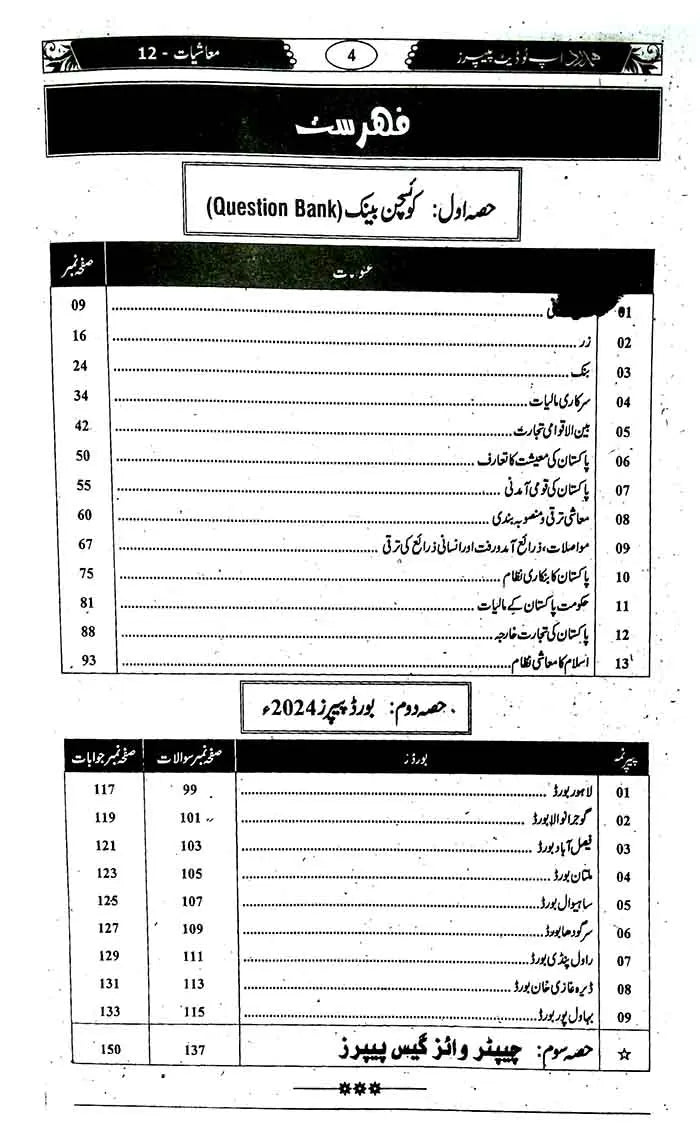 اپ ٹو ڈیٹ پیپرز 4 معاشیات - 12
فہرست
حصہ اول: کوئسچن بینک (Question Bank)
صفحہ نمبر
01 09
02 زر 16
03 بنک 24
04 سرکاری مالیات 34
05 بین الاقوامی تجارت 42
06 پاکستان کی معیشت کا تعارف 50
07 پاکستان کی قومی آمدنی 55
08 معاشی ترقی و منصوبہ بندی 60
09 مواصلات، ذرائع آمدورفت اور انسانی ذرائع کی ترقی 67
10 پاکستان کا بنکاری نظام 75
11 حکومت پاکستان کے مالیات 81
12 پاکستان کی تجارت خارجہ 88
13 اسلام کا معاشی نظام 93
حصہ دوم: بورڈ پیپرز 2024ء
بورڈز صفحہ نمبر سوالات صفحہ نمبر جوابات
01 لاہور بورڈ 99 117
02 گوجرانوالا بورڈ 101 119
03 فیصل آباد بورڈ 103 121
04 ملتان بورڈ 105 123
05 ساہیوال بورڈ 107 125
06 سرگودھا بورڈ 109 127
07 راول پنڈی بورڈ 111 129
08 ڈیرہ غازی خان بورڈ 113 131
09 بہاول پور بورڈ 115 133
☆ حصہ سوم: چیپٹر وائز گیس پیپرز 137 150